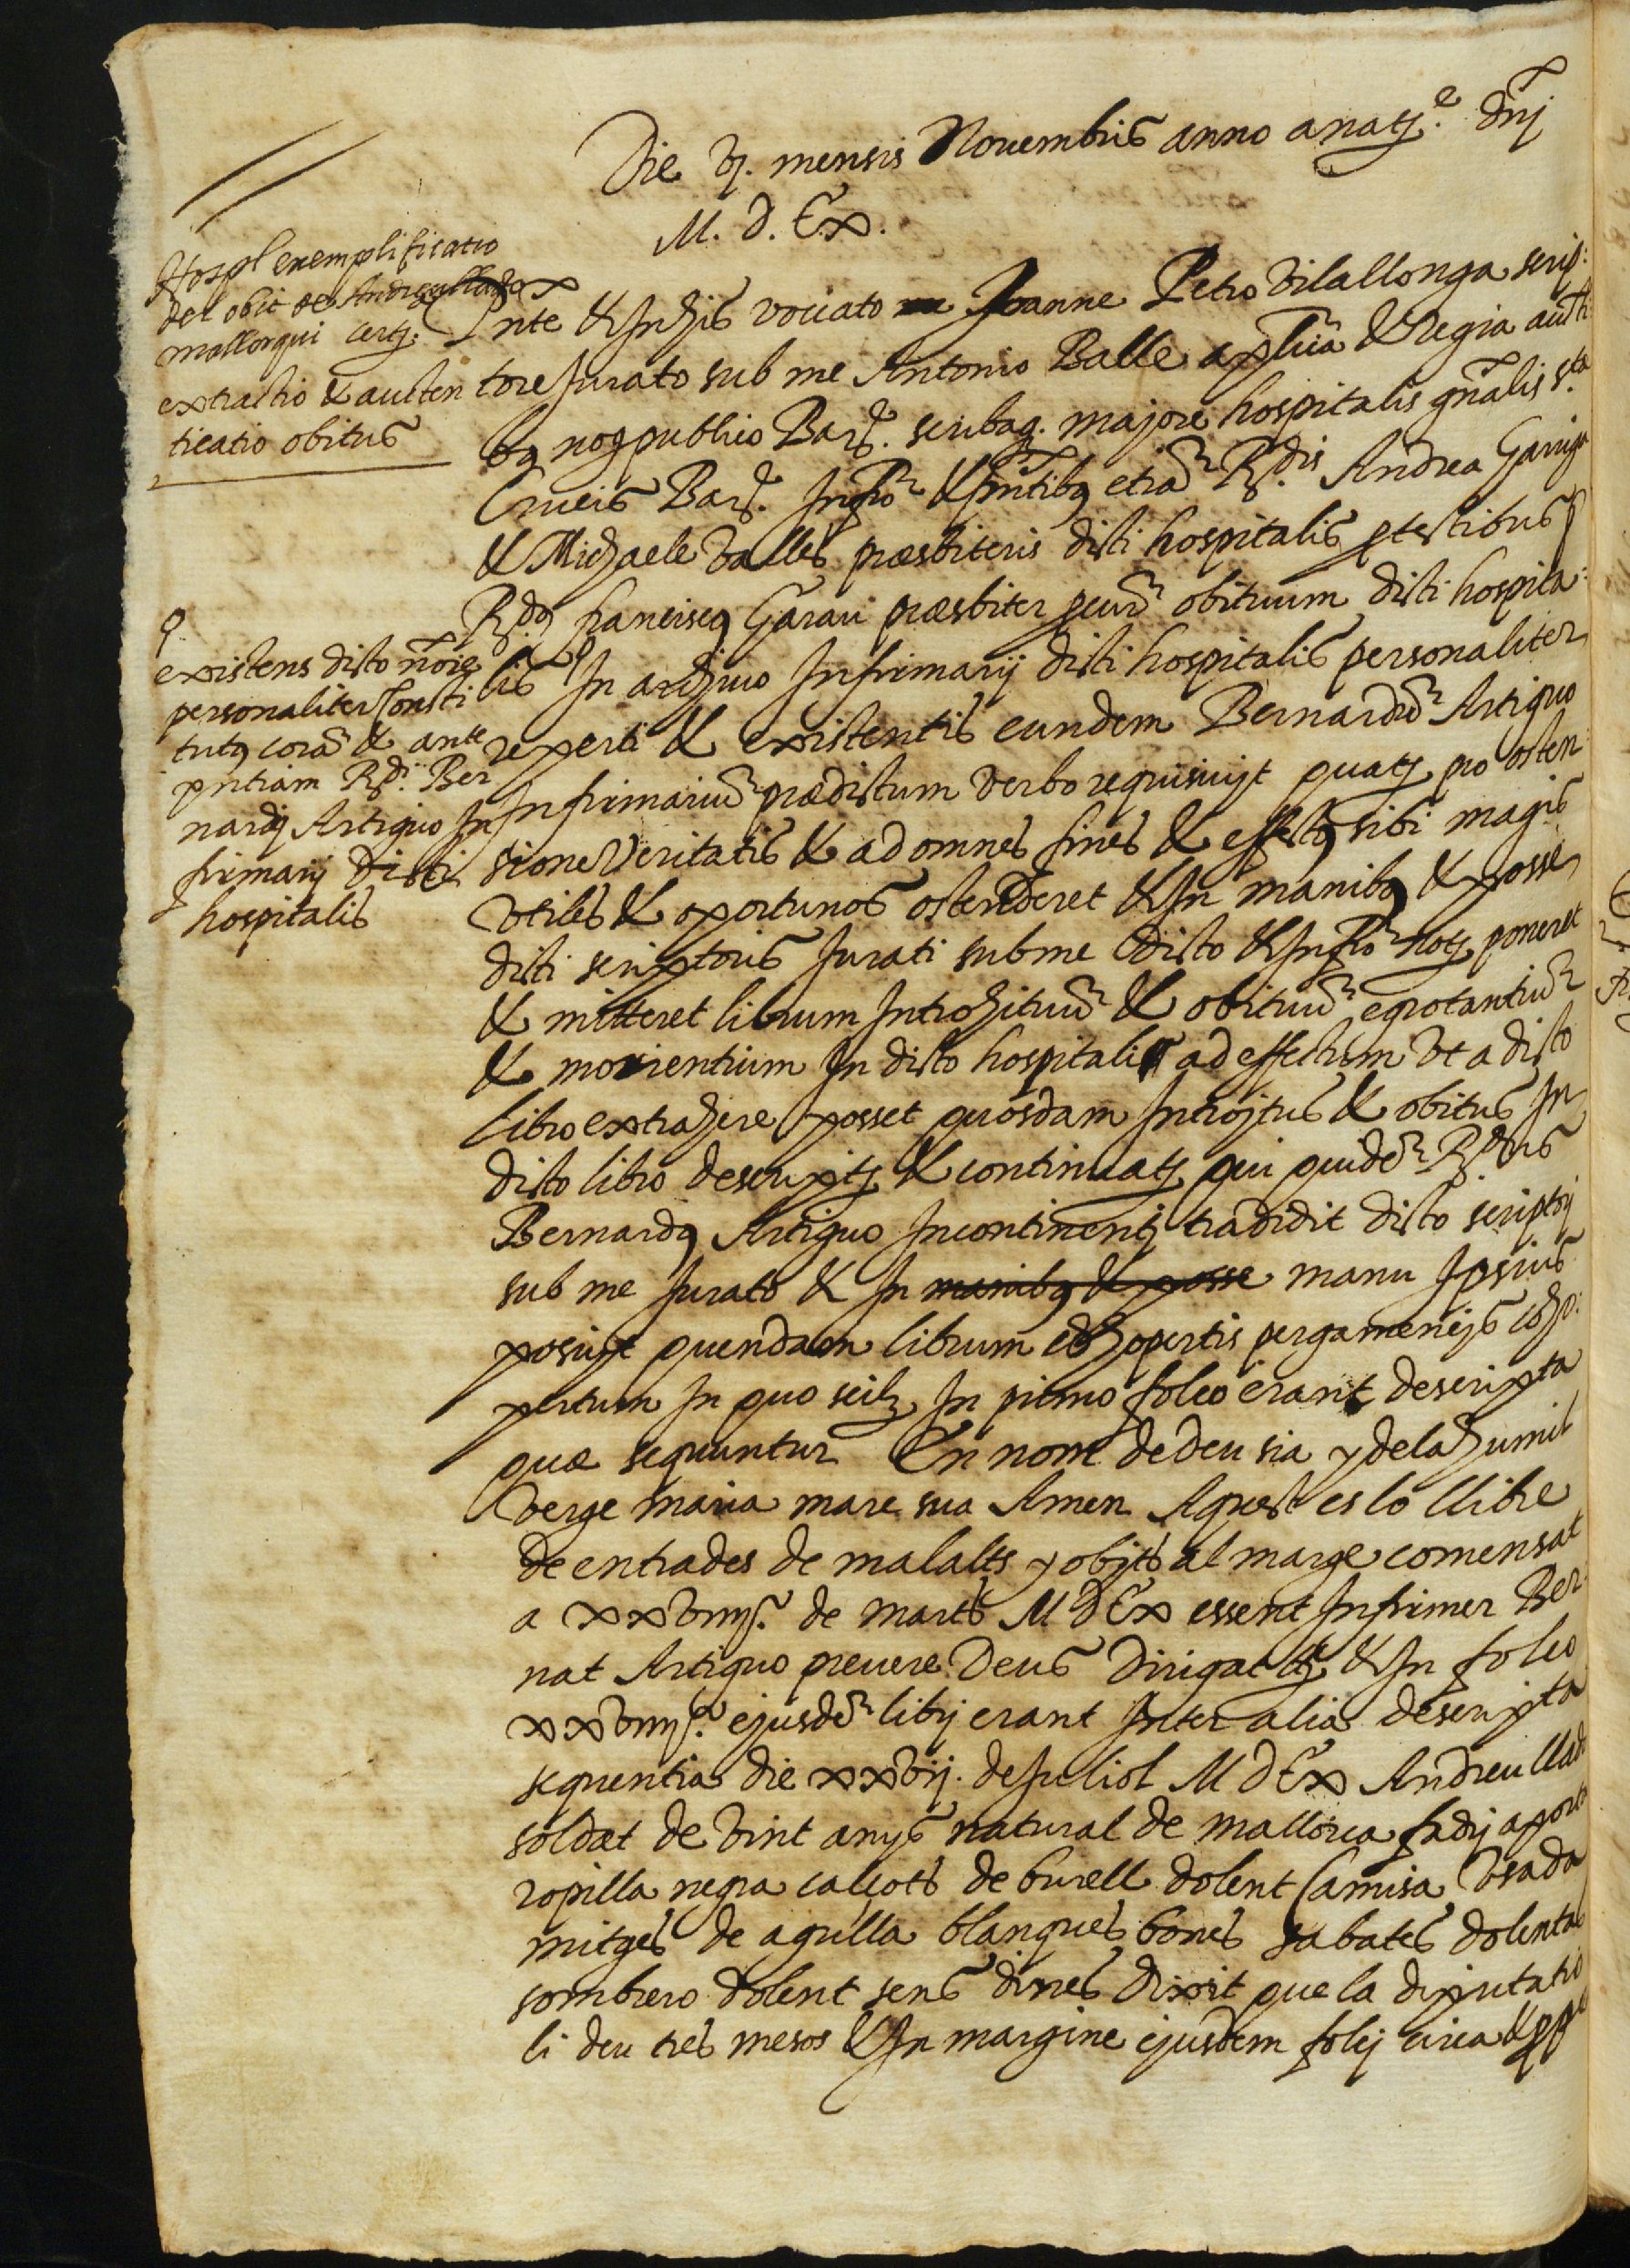 Die vj. mensis Nouembris anno a natte. dnj
M. D. Lx.
Hospl exemplificatio
del obit de Andreu llado
mallorqui
extractio & auten
ticatio obitus
Pnte & Inhis vocato Joanne Petro Vilallonga scrip:
tore Jurato sub me Antonio Batlle aplica & Regia auctti
bq noq publico Barq. scribaq. majore hospitalis gnalis Sta
Crucis Barq. Infro & pntibq etia Rdis Andrea Garriga
& Michaele Valles præsbiteris dicti hospitalis ptestibus
Rdq franciscq Garau præsbiter pcur obituum dicti hospita:
lis In archivo Infirmarij dicti hospitalis personaliter
reperti & existentis eundem Bernardu Artiguo
Infirmariu prædictum verbo requisiuit quatq pro osten
sione veritatis & ad omnes fines & effectq sibi magis
vtiles & oportunos ostenderet & In manibq & posse
dicti scriptoris Jurati sub me dicto & Infro notq poneret
& mitteret librum Introhituu & obituu egrotantiu
& morientium In dicto hospitali ad effectum vt a dicto
libro extrahere posset quosdam Introjtus & obitus In
dicto libro descriptq & continuatq qui quide Rdus
Bernardq Artiguo Incontinentj tradidit dicto scriptorj
sub me Jurato & In manibq & posse manu Ipsius
posuit quendam librum cohopertis pergamenejs coho:
pertum In quo scilz In primo foleo erant descripta
quæ sequuntur En nom de deu sia y de la humil
verge maria mare sua Amen Aquest es lo llibre
de entrades de malalts y obits al marge comensat
a xxviiij. de marts M D Lx essent Infirmer Ber:
nat Artiguo preuere Deus Dirigat &c & In foleo
xxviiij. ejusde librj erant Inter alia descripta
sequentia die xxvij. de Juliol M D Lx Andreu llado
soldat de vint anys natural de mallorca fadrj aporta
ropilla negra calçots de burell dolent Camisa vsada
mitges de agulla blanques bones sabates dolentas
sombrero dolent sens dines Dixit que la diputatio
li deu tres mesos & In margine ejusdem folej circa
existens dicto noie
personaliter Consti
tutq cora & ante
pntiam Rdi. Ber
nardj Artiguo In
firmarij dicti
hospitalis